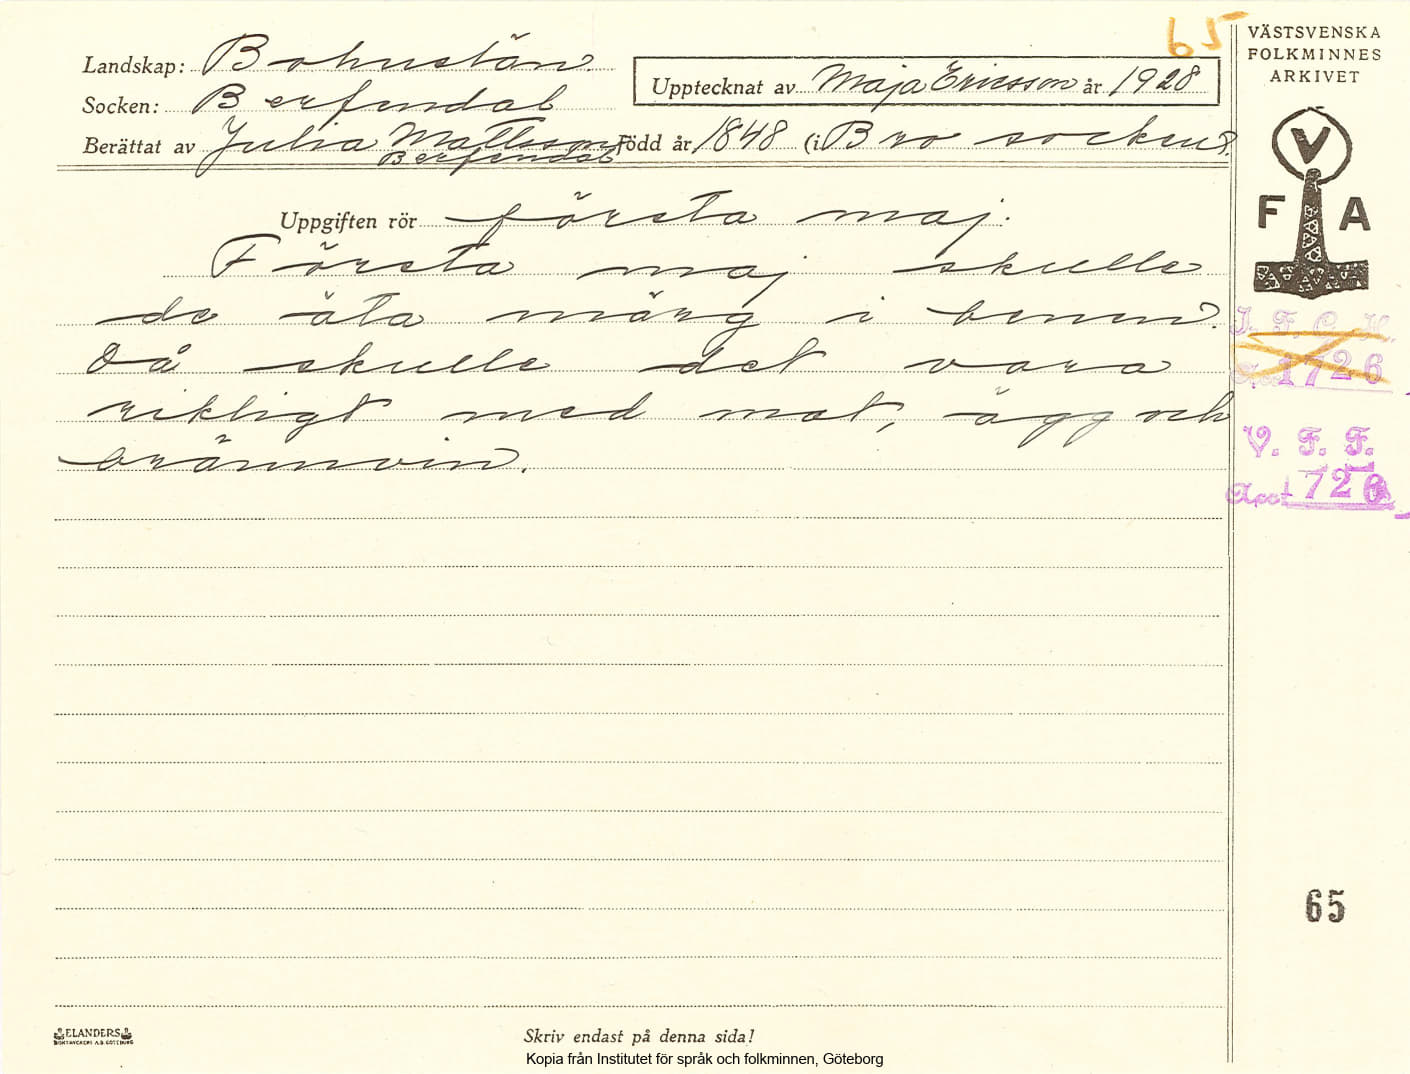 65
VÄSTSVENSKA
FOLKMINNES
ARKIVET
Landskap: Bohuslän.
Upptecknat av Maja Ericsson år 1928
Socken: Berfendal
Berättat av Julia Mattsson Född år 1848 (i Bro socken).
Berfendal
V
F A
Uppgiften rör första maj.
Första maj skulle
de äta märg i benen.
Då skulle det vara
rikligt med mat, ägg och
brännvin.
I. F. G. H.
Acc. 1726
V. F. F.
Acc. 1726
65
ELANDERS
BOKTRYCKERI A.B. GÖTEBORG
Skriv endast på denna sida!
Kopia från Institutet för språk och folkminnen, Göteborg